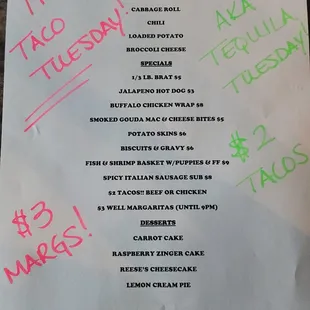 CABBAGE ROLL
CHILI
LOADED POTATO
BROCCOLI CHEESE
SPECIALS
1/3 LB. BRAT $5
JALAPENO HOT DOG $3
BUFFALO CHICKEN WRAP $8
SMOKED GOUDA MAC & CHEESE BITES $5
POTATO SKINS $6
BISCUITS & GRAVY $6
FISH & SHRIMP BASKET W/PUPPIES & FF $9
SPICY ITALIAN SAUSAGE SUB $8
$2 TACOS!! BEEF OR CHICKEN
$3 WELL MARGARITAS (UNTIL 9PM)
DESSERTS
CARROT CAKE
RASPBERRY ZINGER CAKE
REESE'S CHEESECAKE
LEMON CREAM PIE
TACO
TUESDAY!
AKA
TEQUILA
TUESDAY!
$2
TACOS
$3
MARGS!